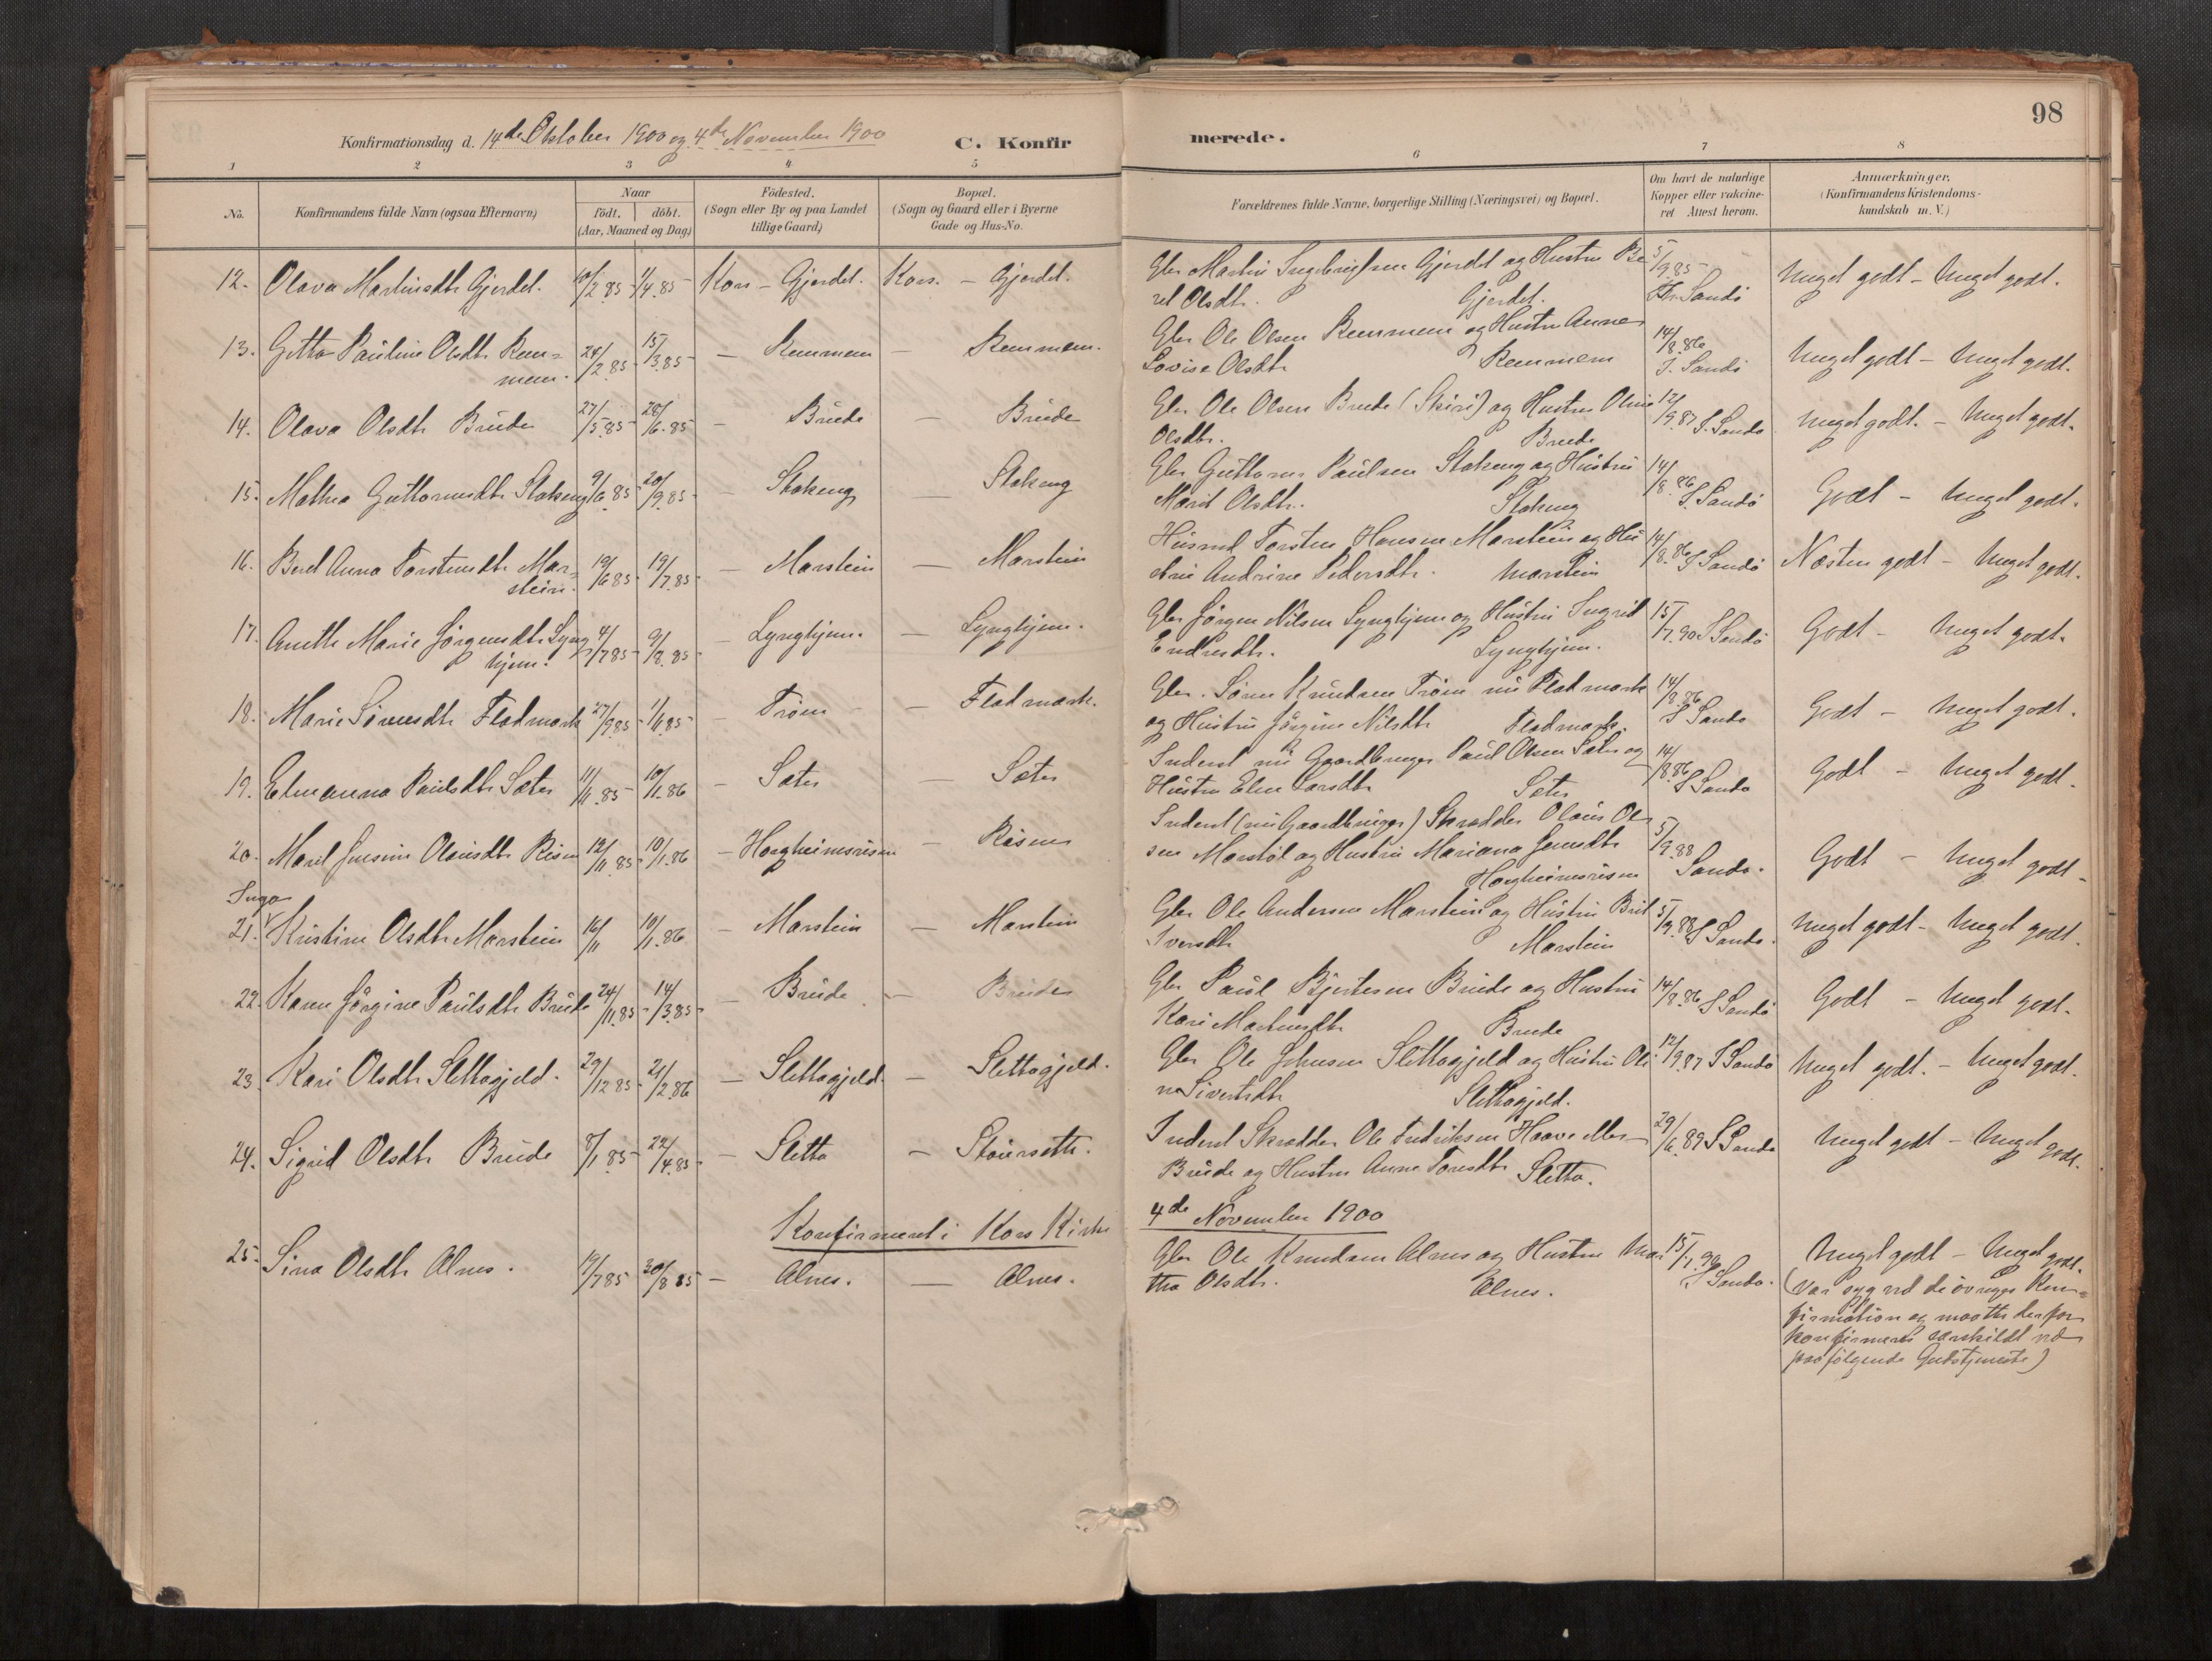 98
Konfirmationsdag d. 14de Oktober 1900 og 4de November 1900
C. Konfirmerede.
1 2 3 4 5 6 7 8
No.
Konfirmandens fulde Navn (ogsaa Efternavn)
Naar
födt. döbt.
(Aar, Maaned og Dag)
Födested.
(Sogn eller By og paa Landet
tillige Gaard)
Bopæl.
(Sogn og Gaard eller i Byerne
Gade og Hus-No.
Forældrenes fulde Navne, borgerlige Stilling (Næringsvei) og Bopæl.
Om havt de naturlige
Kopper eller vakcine-
ret Attest herom.
Anmærkninger.
(Konfirmandens Kristendoms-
kundskab m. V.)
12. Olava Martinsdtr Gjerdet. 10/2.85 - 1/4.85 - Kors - Gjerdet. Kors. - Gjerdet.
Gbr Martin Ingebrigtsen Gjerdet og Hustru Be 5/9.85 -
ret Olsdtr. Gjerdet. Sandö
Meget godt - Meget godt.
13. Gitta Pauline Olsdtr Rem= 24/2.85 - 15/3.85 - Remmem - Remmem.
mem.
Gbr Ole Olsen Remmem og Hustru Anne 14/8.86
Lovise Olsdtr Remmem S. Sandö
Meget godt - Meget godt.
14. Olava Olsdtr Brude 27/5.85 - 28/6.85 - Brude - Brude
Gbr Ole Olsen Brude (Skiri) og Hustru Oline 12/9.87 S. Sandö
Olsdtr. Brude
Meget godt. - Meget godt.
15. Mathea Guttormsdtr Stokeng 9/6.85 - 20/9.85 - Stokeng - Stokeng
Gbr Guttorm Paulsen Stokeng og Hustru 14/8.86
Marit Olsdtr. Stokeng S. Sandö
Godt - Meget godt.
16. Beret Anna Torstensdtr Mar= 19/6 85 - 19/7.85 - Marstein - Marstein
stein.
Husmd Torsten Hansen Marstein og Hu 14/8.86 S Sandö
stru Andrine Pedersdtr. Marstein
Næsten godt - Meget godt.
17. Anette Marie Jörgensdtr Lyng 4/7 85 - 9/8.85 - Lynghjem. - Lynghjem.
hjem.
Gbr Jörgen Nilsen Lynghjem og Hustru Ingrid 15/7.90 S Sandö
Endresdtr. Lynghjem.
Godt - Meget godt.
18. Marie Sörensdtr Fladmark 27/9 85 - 1/11.85 - Tröm - - Fladmark.
Gbr. Sören Knudsen Tröm nu Fladmark 14/8.86
og Hustru Jörgine Nilsdtr Fladmark. S Sandö
Godt - Meget godt.
19. Elenanna Paulsdtr Sæter 11/11.85 - 10/1.86 - Sæter - Sæter
Inderst nu Gaardbruger Paul Olsen Sæter og 14/8.86
Hustru Elen Larsdtr Sæter S Sandö
Godt - Meget godt.
20. Marit Jensine Olausdtr Risem 12/11.85 - 10/1.86 - Horgheimsrisem - Risem
Inderst (nu Gaardbruger) Skrædder Olaus Ol
sen Marstöl og Hustru Mariana Jensdtr 5/9.88
Horgheimsrisem Sandö.
Godt - Meget godt
Inga
21. Kristine Olsdtr Marstein 16/11 10/1.86 - Marstein - Marstein
Gbr Ole Andersen Marstein og Hustru Brit 5/9.88 S Sandö.
Iversdtr Marstein
Meget godt - Meget godt.
22. Karen Jörgine Paulsdtr Brude 24/11.85 - 14/3.85 - Brude - Brude
Gbr Paul Bjertesen Brude og Hustru 14/8.86 S Sandö
Kari Martinsdtr Brude
Godt - Meget godt.
23. Kari Olsdtr Slettagjeld. 29/12 85 - 21/2.86 - Slettagjeld. - Slettagjeld.
Gbr Ole Johnsen Slettagjeld og Hustru Oli 12/9.87 S Sandö
na Sivertsdtr Slettagjeld.
Meget godt. - Meget godt.
24. Sigrid Olsdtr Brude 8/1.85 - 22/4.85 - Sletta - Stavrsette.
Inderst Skrædder Ole Fredriksen Haave eller 29/6.89 S Sandö
Brude og Hustru Anne Toresdtr Sletta.
Meget godt - Meget godt.
Konfirmeret i Kors Kirke 4de November 1900
25. Sina Olsdtr Alnes. 19/7 85 30/8 85 - Alnes. - Alnes.
Gbr Ole Knudsen Alnes og Hustru Mar 15/7.90
tha Olsdtr. Alnes. S Sandö.
Meget godt - Meget godt.
(Var syg ved de övriges Kon=
firmation og maatte derfor
konfirmeres særskildt ved
paafölgende Gudstjeneste)